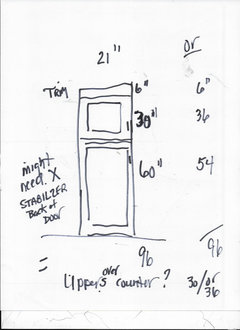 21" or
TRIM 6" 6"
30" 36
might
need X
STABILZER
Back of
DOOR
60" 54
96 96
=
Uppers over counter? 30/or
36